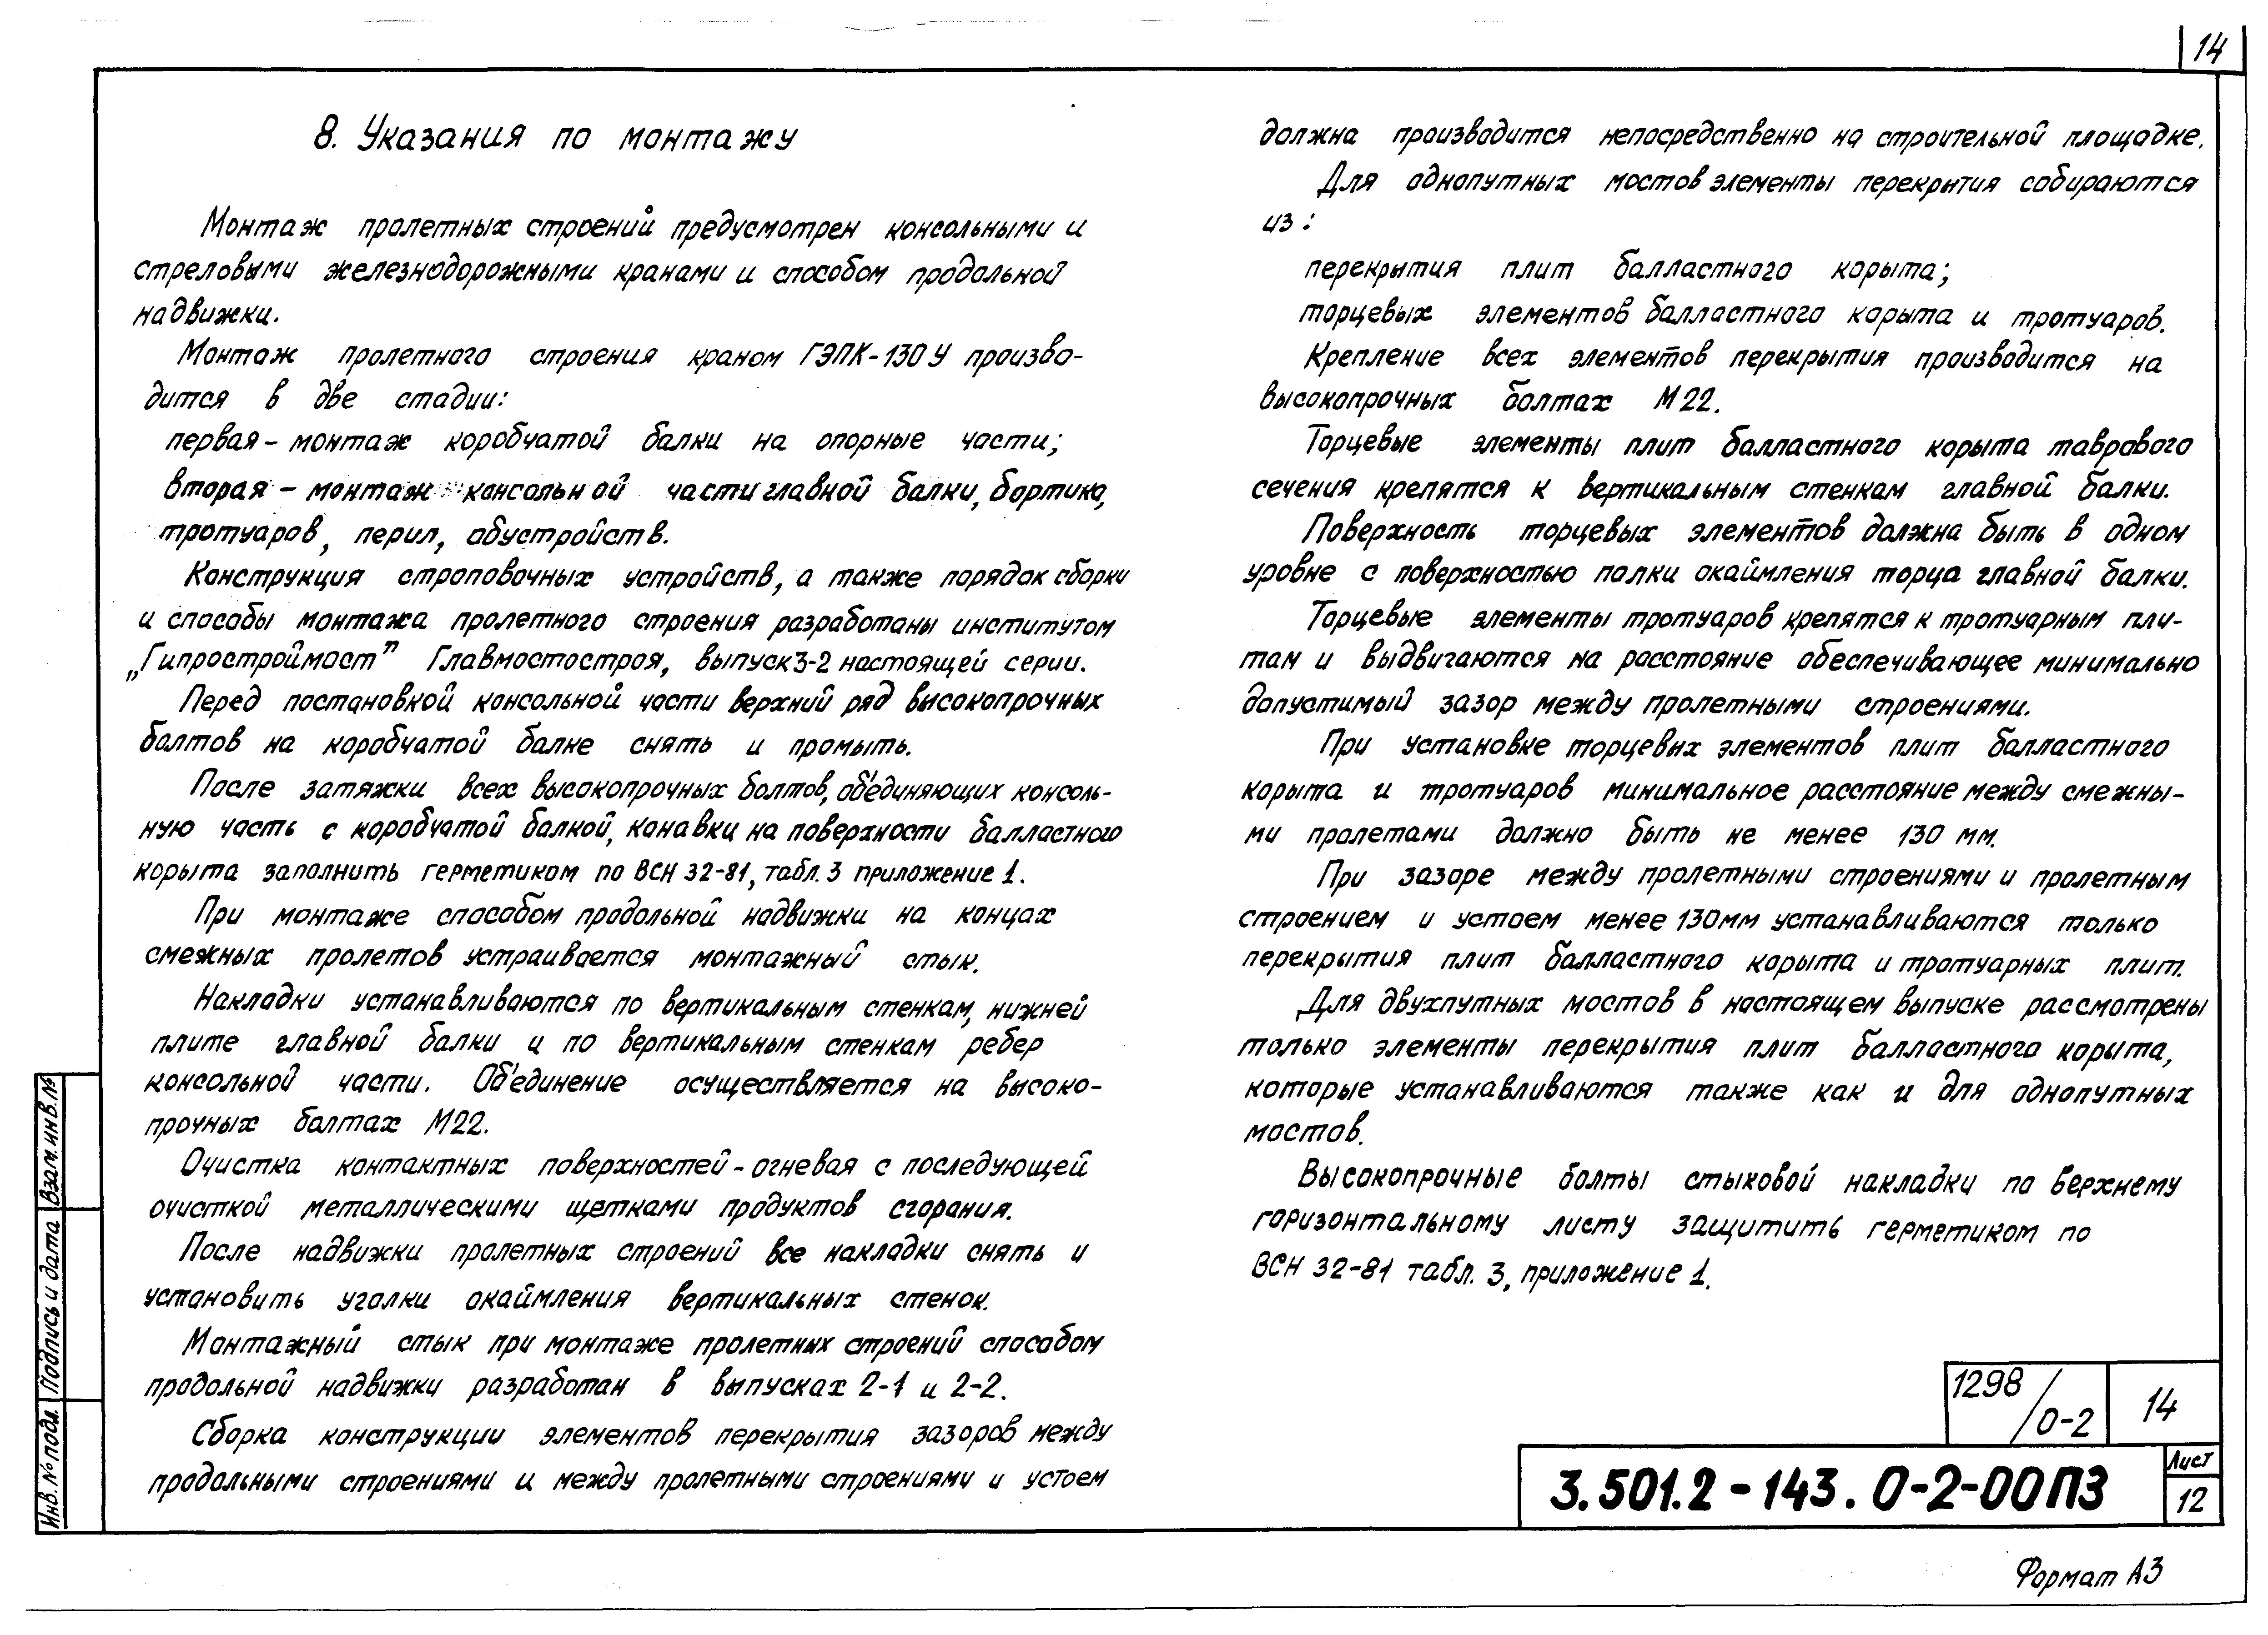 14
8. Указания по монтажу
Монтаж пролетных строений предусмотрен консольными и
стреловыми железнодорожными кранами и способом продольной
надвижки.
Монтаж пролетного строения краном ГЭПК-130У произво-
дится в две стадии:
первая - монтаж коробчатой балки на опорные части;
вторая - монтаж консольной части главной балки, бортика,
тротуаров, перил, обустройств.
Конструкция строповочных устройств, а также порядок сборки
и способы монтажа пролетного строения разработаны институтом
„Гипростроймост" Главмостостроя, выпуск 3-2 настоящей серии.
Перед постановкой консольной части верхний ряд высокопрочных
болтов на коробчатой балке снять и промыть.
После затяжки всех высокопрочных болтов, об'единяющих консоль-
ную часть с коробчатой балкой, канавки на поверхности балластного
корыта заполнить герметиком по ВСН 32-81, табл. 3 приложение 1.
При монтаже способом продольной надвижки на концах
смежных пролетов устраивается монтажный стык.
Накладки устанавливаются по вертикальным стенкам, нижней
плите главной балки и по вертикальным стенкам ребер
консольной части. Об'единение осуществляется на высоко-
прочных болтах М22.
Очистка контактных поверхностей - огневая с последующей
очисткой металлическими щетками продуктов сгорания.
После надвижки пролетных строений все накладки снять и
установить уголки окаймления вертикальных стенок.
Монтажный стык при монтаже пролетных строений способом
продольной надвижки разработан в выпусках 2-1 и 2-2.
Сборка конструкции элементов перекрытия зазоров между
продольными строениями и между пролетными строениями и устоем
должна производится непосредственно на строительной площадке.
Для однопутных мостов элементы перекрытия собираются
из:
перекрытия плит балластного корыта;
торцевых элементов балластного корыта и тротуаров.
Крепление всех элементов перекрытия производится на
высокопрочных болтах М22.
Торцевые элементы плит балластного корыта таврового
сечения крепятся к вертикальным стенкам главной балки.
Поверхность торцевых элементов должна быть в одном
уровне с поверхностью полки окаймления торца главной балки.
Торцевые элементы тротуаров крепятся к тротуарным пли-
там и выдвигаются на расстояние обеспечивающее минимально
допустимый зазор между пролетными строениями.
При установке торцевых элементов плит балластного
корыта и тротуаров минимальное расстояние между смежны-
ми пролетами должно быть не менее 130 мм.
При зазоре между пролетными строениями и пролетным
строением и устоем менее 130мм устанавливаются только
перекрытия плит балластного корыта и тротуарных плит.
Для двухпутных мостов в настоящем выпуске рассмотрены
только элементы перекрытия плит балластного корыта,
которые устанавливаются также как и для однопутных
мостов.
Высокопрочные болты стыковой накладки по верхнему
горизонтальному листу защитить герметиком по
ВСН 32-81 табл. 3, приложение 1.
Инв. № подл. Подпись и дата Взам. инв. №
1298/0-2 14
3.501.2-143.0-2-00ПЗ
Лист
12
Формат А3